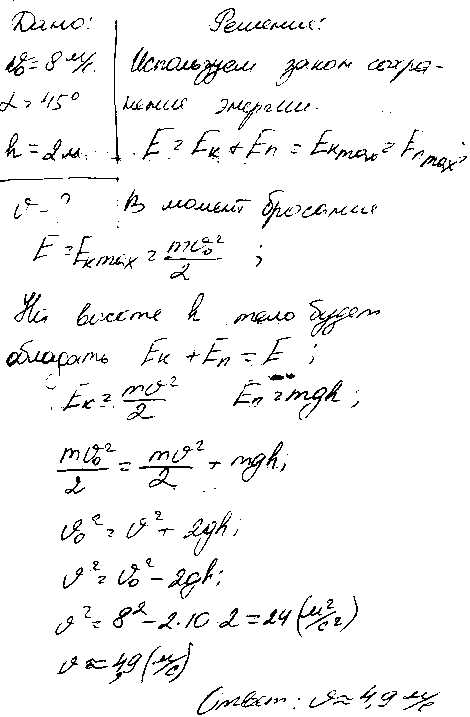 Дано: Решение:
v₀ = 8 м/с. Используем закон сохра-
α = 45° нение энергии.
h = 2 м. E = Eк + Eп = Eк max = Eп max.
v - ? В момент бросания
E = Eк max = mv₀²/2 ;
На высоте h тело будет
обладать Eк + Eп = E ;
Eк = mv²/2 Eп = mgh ;
mv₀²/2 = mv²/2 + mgh;
v₀² = v² + 2gh;
v² = v₀² - 2gh;
v² = 8² - 2·10·2 = 24 (м²/с²)
v ≈ 4,9 (м/с)
Ответ: v ≈ 4,9 м/с